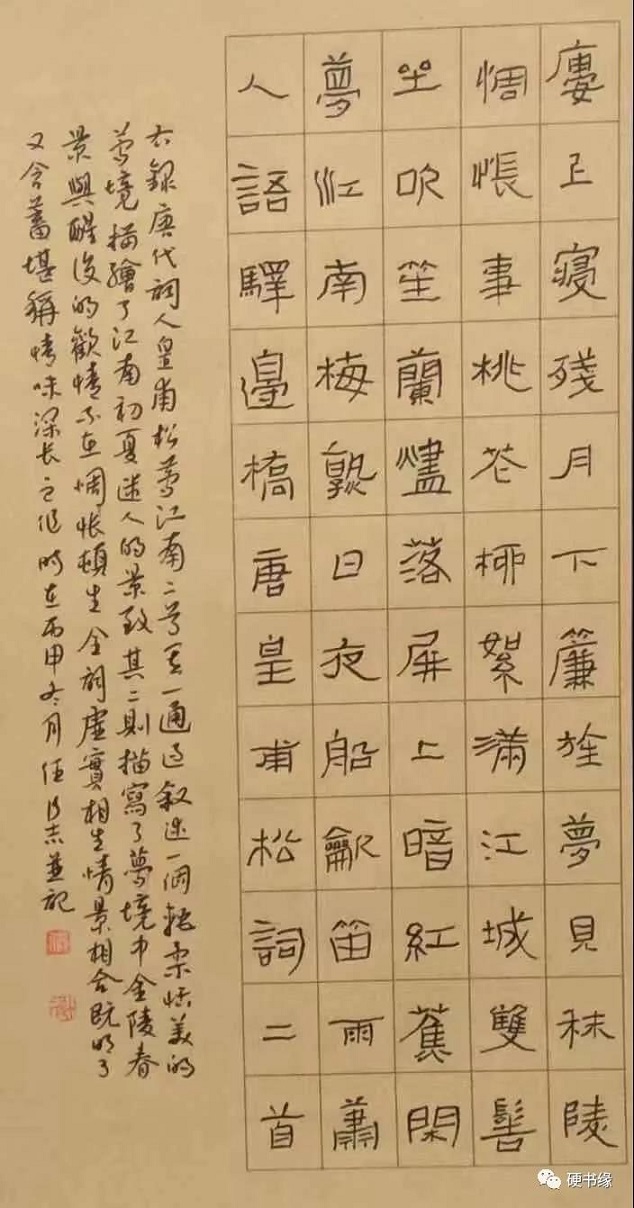 廔上寑殘月下簾旌夢見秣陵
惆悵事桃花柳絮滿江城雙髻
坐吹笙蘭燼落屏上暗紅蕉閑
夢江南梅熟日夜船龡笛雨蕭
人語驛邊橋唐皇甫松詞二首
右錄唐代詞人皇甫松夢江南二首其一通過叙述一個輕柔恬美的
夢境描繪了江南初夏迷人的景致其二則描寫了夢境中金陵春
景與醒後的歡情不在惆悵頓生全詞虛實相生情景相合既明了
又含蓄堪稱情味深长之作時在丙申冬月任志並記
硬书缘